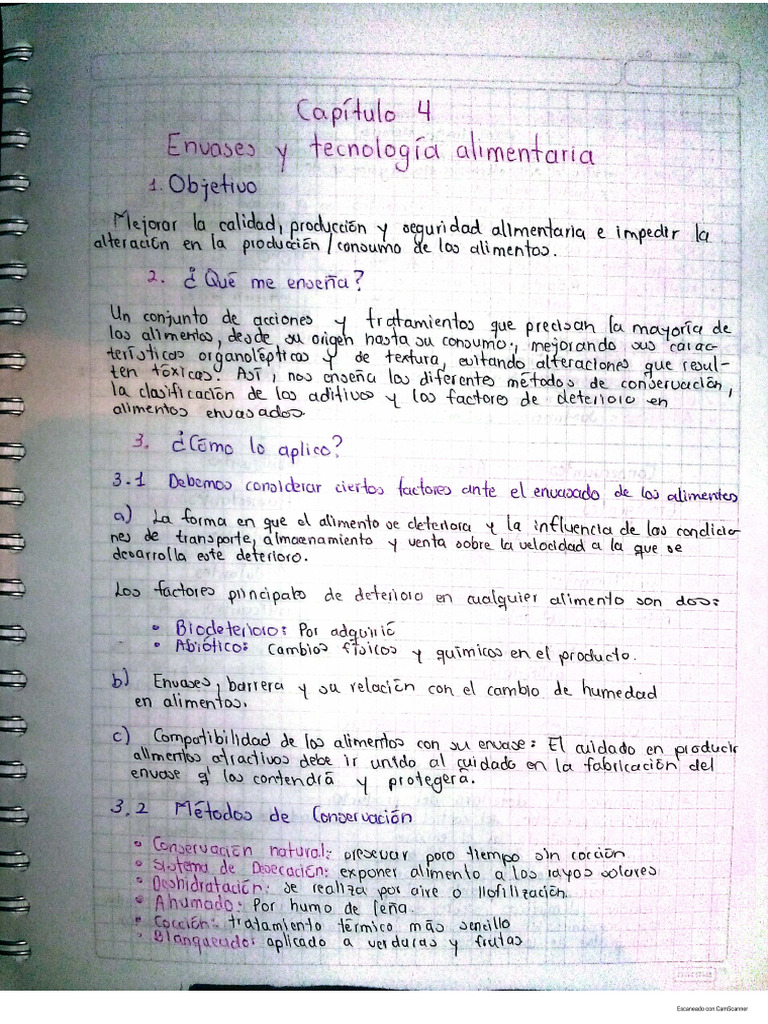 Capítulo 4
Envases y tecnología alimentaria
1. Objetivo
Mejorar la calidad, producción y seguridad alimentaria e impedir la
alteración en la producción/consumo de los alimentos.
2. ¿Qué me enseña?
Un conjunto de acciones y tratamientos que precisan la mayoría de
los alimentos, desde su origen hasta su consumo; mejorando sus carac-
terísticas organolépticas y de textura, evitando alteraciones que resul-
ten tóxicas. Así, nos enseña los diferentes métodos de conservación,
la clasificación de los aditivos y los factores de deterioro en
alimentos envasados.
3. ¿Cómo lo aplico?
3.1 Debemos considerar ciertos factores ante el envasado de los alimentos
a) La forma en que el alimento se deteriora y la influencia de las condicio-
nes de transporte, almacenamiento y venta sobre la velocidad a la que se
desarrolla este deterioro.
Los factores principales de deterioro en cualquier alimento son dos:
• Biodeterioro: Por adquirir
• Abiótico: Cambios físicos y químicos en el producto.
b) Envases, barrera y su relación con el cambio de humedad
en alimentos.
c) Compatibilidad de los alimentos con su envase: El cuidado en producir
alimentos atractivos debe ir unido al cuidado en la fabricación del
envase q' los contendrá y protegerá.
3.2 Métodos de Conservación
• Conservación natural: preservar poco tiempo sin cocción
• Sistema de Desecación: exponer alimento a los rayos solares
• Deshidratación: se realiza por aire o liofilización.
• Ahumado: Por humo de leña.
• Cocción: tratamiento térmico más sencillo
• Blanqueado: aplicado a verduras y frutas
norma
Escaneado con CamScanner